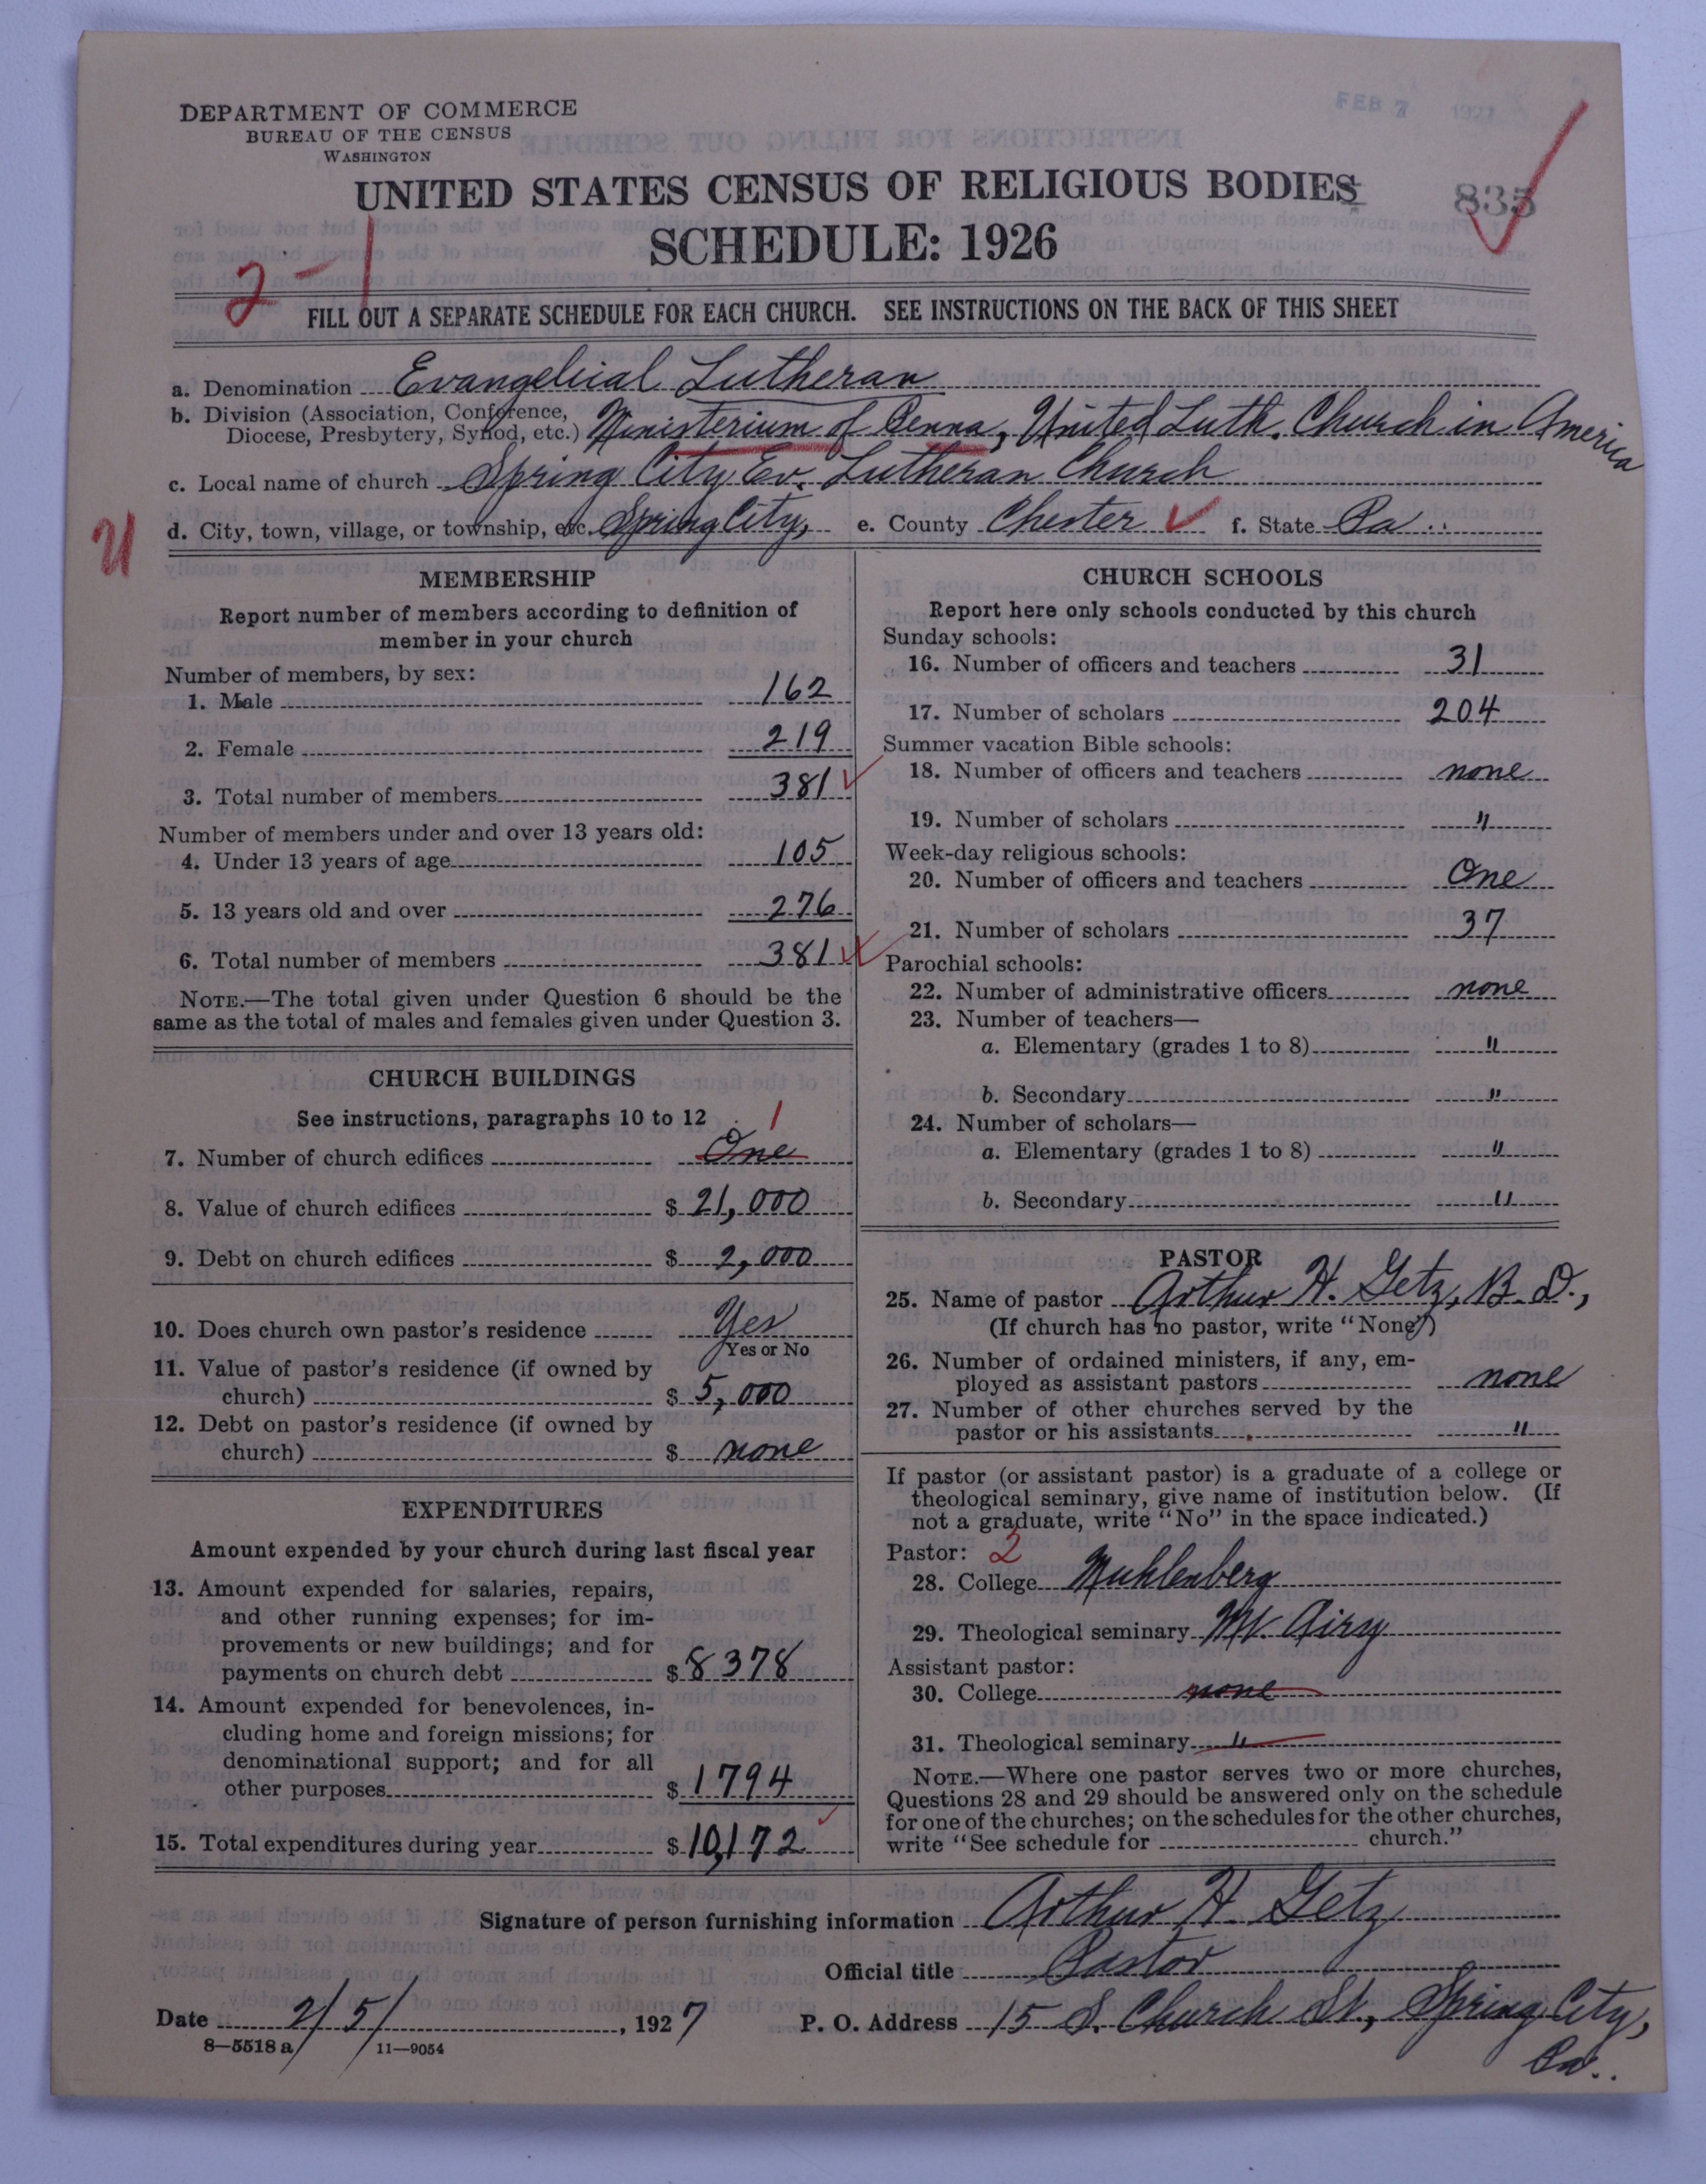 FEB 7 1927
DEPARTMENT OF COMMERCE
BUREAU OF THE CENSUS
WASHINGTON
UNITED STATES CENSUS OF RELIGIOUS BODIES
835
SCHEDULE: 1926
2-1
FILL OUT A SEPARATE SCHEDULE FOR EACH CHURCH. SEE INSTRUCTIONS ON THE BACK OF THIS SHEET
a. Denomination Evangelical Lutheran
b. Division (Association, Conference, Diocese, Presbytery, Synod, etc.) Ministerium of Penna, United Luth. Church in America
c. Local name of church Spring City Ev. Lutheran Church
d. City, town, village, or township, etc. Spring City, e. County Chester f. State Pa.
MEMBERSHIP
Report number of members according to definition of
member in your church
Number of members, by sex:
1. Male 162
2. Female 219
3. Total number of members 381
Number of members under and over 13 years old:
4. Under 13 years of age 105
5. 13 years old and over 276
6. Total number of members 381
NOTE.—The total given under Question 6 should be the
same as the total of males and females given under Question 3.
CHURCH BUILDINGS
See instructions, paragraphs 10 to 12
1
7. Number of church edifices One
8. Value of church edifices $ 21,000
9. Debt on church edifices $ 2,000
10. Does church own pastor's residence Yes
Yes or No
11. Value of pastor's residence (if owned by
church) $ 5,000
12. Debt on pastor's residence (if owned by
church) $ none
EXPENDITURES
Amount expended by your church during last fiscal year
13. Amount expended for salaries, repairs,
and other running expenses; for im-
provements or new buildings; and for
payments on church debt $ 8378
14. Amount expended for benevolences, in-
cluding home and foreign missions; for
denominational support; and for all
other purposes $ 1794
15. Total expenditures during year $ 10,172
CHURCH SCHOOLS
Report here only schools conducted by this church
Sunday schools:
16. Number of officers and teachers 31
17. Number of scholars 204
Summer vacation Bible schools:
18. Number of officers and teachers none
19. Number of scholars "
Week-day religious schools:
20. Number of officers and teachers One
21. Number of scholars 37
Parochial schools:
22. Number of administrative officers none
23. Number of teachers—
a. Elementary (grades 1 to 8) "
b. Secondary "
24. Number of scholars—
a. Elementary (grades 1 to 8) "
b. Secondary "
PASTOR
25. Name of pastor Arthur H. Getz, B.D.,
(If church has no pastor, write "None")
26. Number of ordained ministers, if any, em-
ployed as assistant pastors none
27. Number of other churches served by the
pastor or his assistants "
If pastor (or assistant pastor) is a graduate of a college or
theological seminary, give name of institution below. (If
not a graduate, write "No" in the space indicated.)
Pastor: 2
28. College Muhlenberg
29. Theological seminary Mt. Airy
Assistant pastor:
30. College none
31. Theological seminary "
NOTE.—Where one pastor serves two or more churches,
Questions 28 and 29 should be answered only on the schedule
for one of the churches; on the schedules for the other churches,
write "See schedule for church."
Signature of person furnishing information Arthur H. Getz
Official title Pastor
Date 2/5/, 1927 P. O. Address 15 S. Church St., Spring City,
Pa.
8—5518 a 11—9054